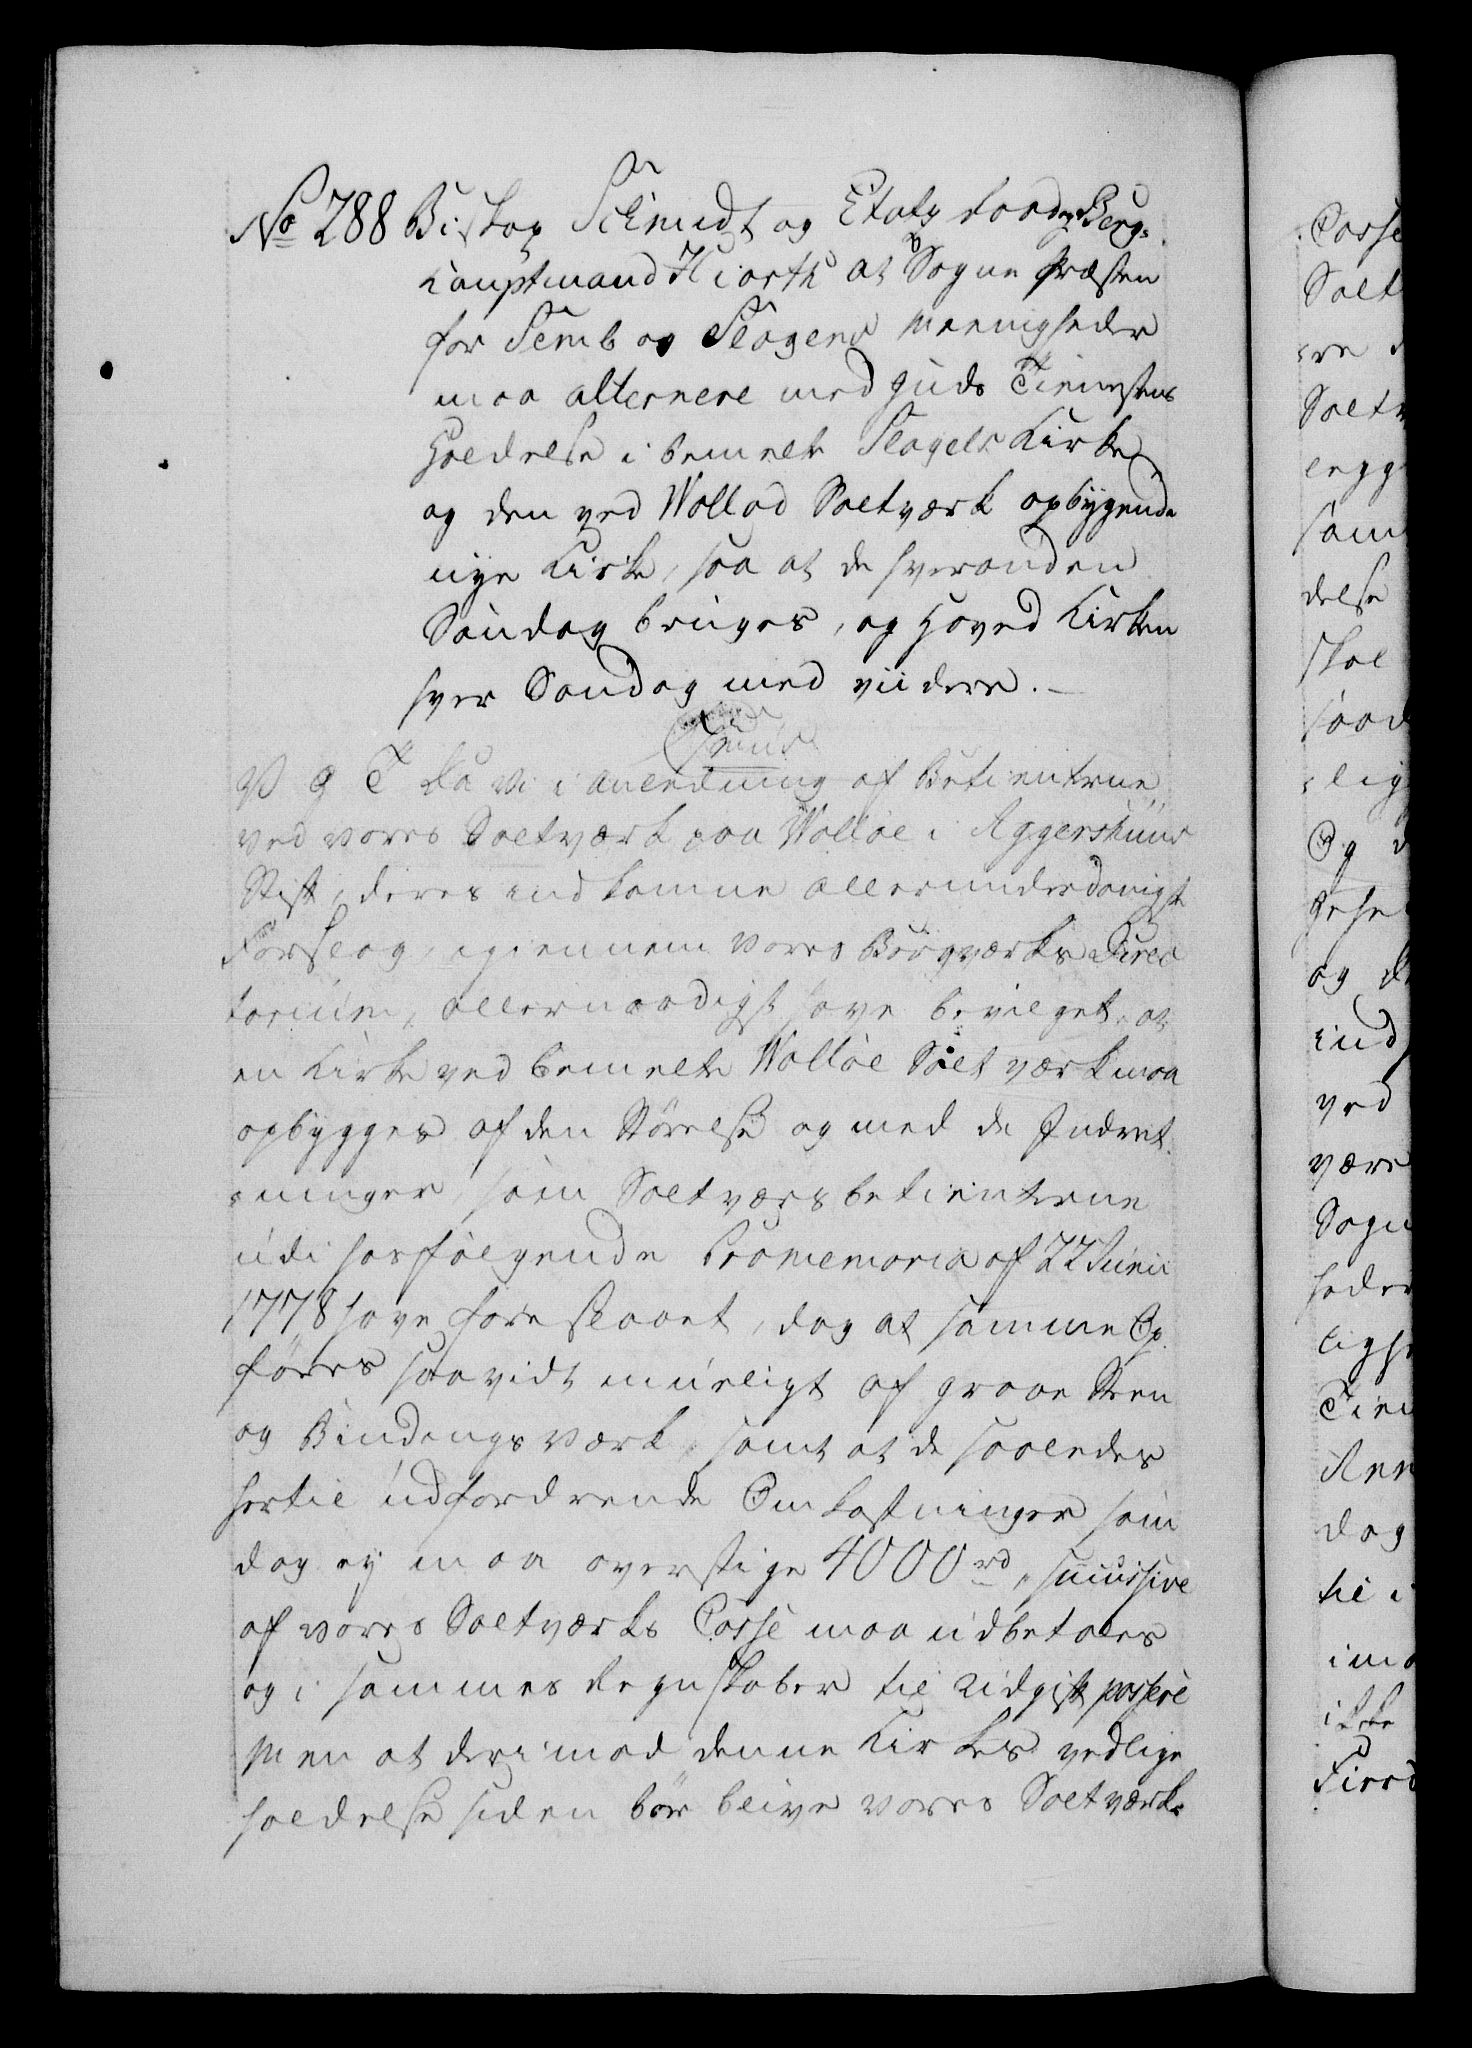 No 288 Biskop Schmidt og Etatz Raad og Berg-
hauptmand Hiorth at Sogne Præsten
for Semb og Slagens Meenigheder
maa alternere med Guds Tienestens
Holdelse i bemelte Slagens Kirke
og den ved Walløe Saltværk opbygende
nye Kirke, saa at de hveranden
Søndag bruges, og Hoved Kirken
hver Søndag med viidere. —
V G T Da Vi i Anledning af Betienterne
ved vores Saltværk paa Walløe i Aggershuus
Stift, deres indkomne allerunderdanigst
Forslag, igiennem vores Bergværks Direc
torium, allernaadigst have bevilget, at
en Kirke ved bemelte Walløe Saltværk maa
opbygges af den Størelse og med de Indret-
ninger, som Saltværsbetienterne
udi hosfølgende Promemoria af 22 Junii
1778 have foreslaaet, dog at samme Op
føres saavidt mueligt af graae Steen
og Bindingsværk, samt at de saaledes
hertil udfordrende Omkostninger som
dog ey maa overstige 4000 rd, successive
af vores Saltværks Casse maa udbetales
og i sammes Regnskaber til Udgift passere
Men at derimod denne Kirkes vedlige
holdelse siden bør blive vores Saltværks
Casse
Salt
Saltv
som
delse
skal
saad
lig
Og d
og d
ind
ved
være
Sogn
heder
Tien
dog
til i
ikke